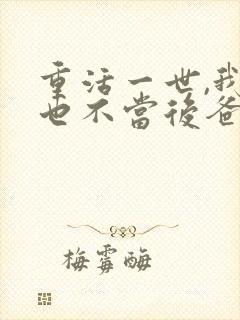 重活一世,我
也不當後爸
梅霉酶